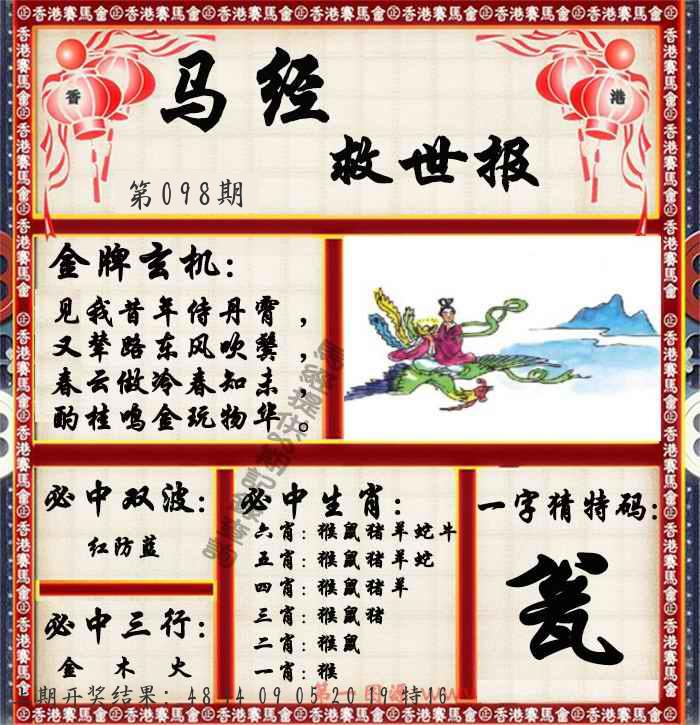 马经
救世报
第098期
香
港
金牌玄机:
见我昔年侍丹霄，
又辇路东风吹鬓，
春云做泠春知未，
酌桂鸣金玩物华。
必中双波:
红防蓝
必中三行:
金 木 火
必中生肖:
六肖: 猴鼠猪羊蛇牛
五肖: 猴鼠猪羊蛇
四肖: 猴鼠猪羊
三肖: 猴鼠猪
二肖: 猴鼠
一肖: 猴
一字猜特码:
瓮
期开奖结果: 48 44 09 05 20 19 特16
香港賽馬會